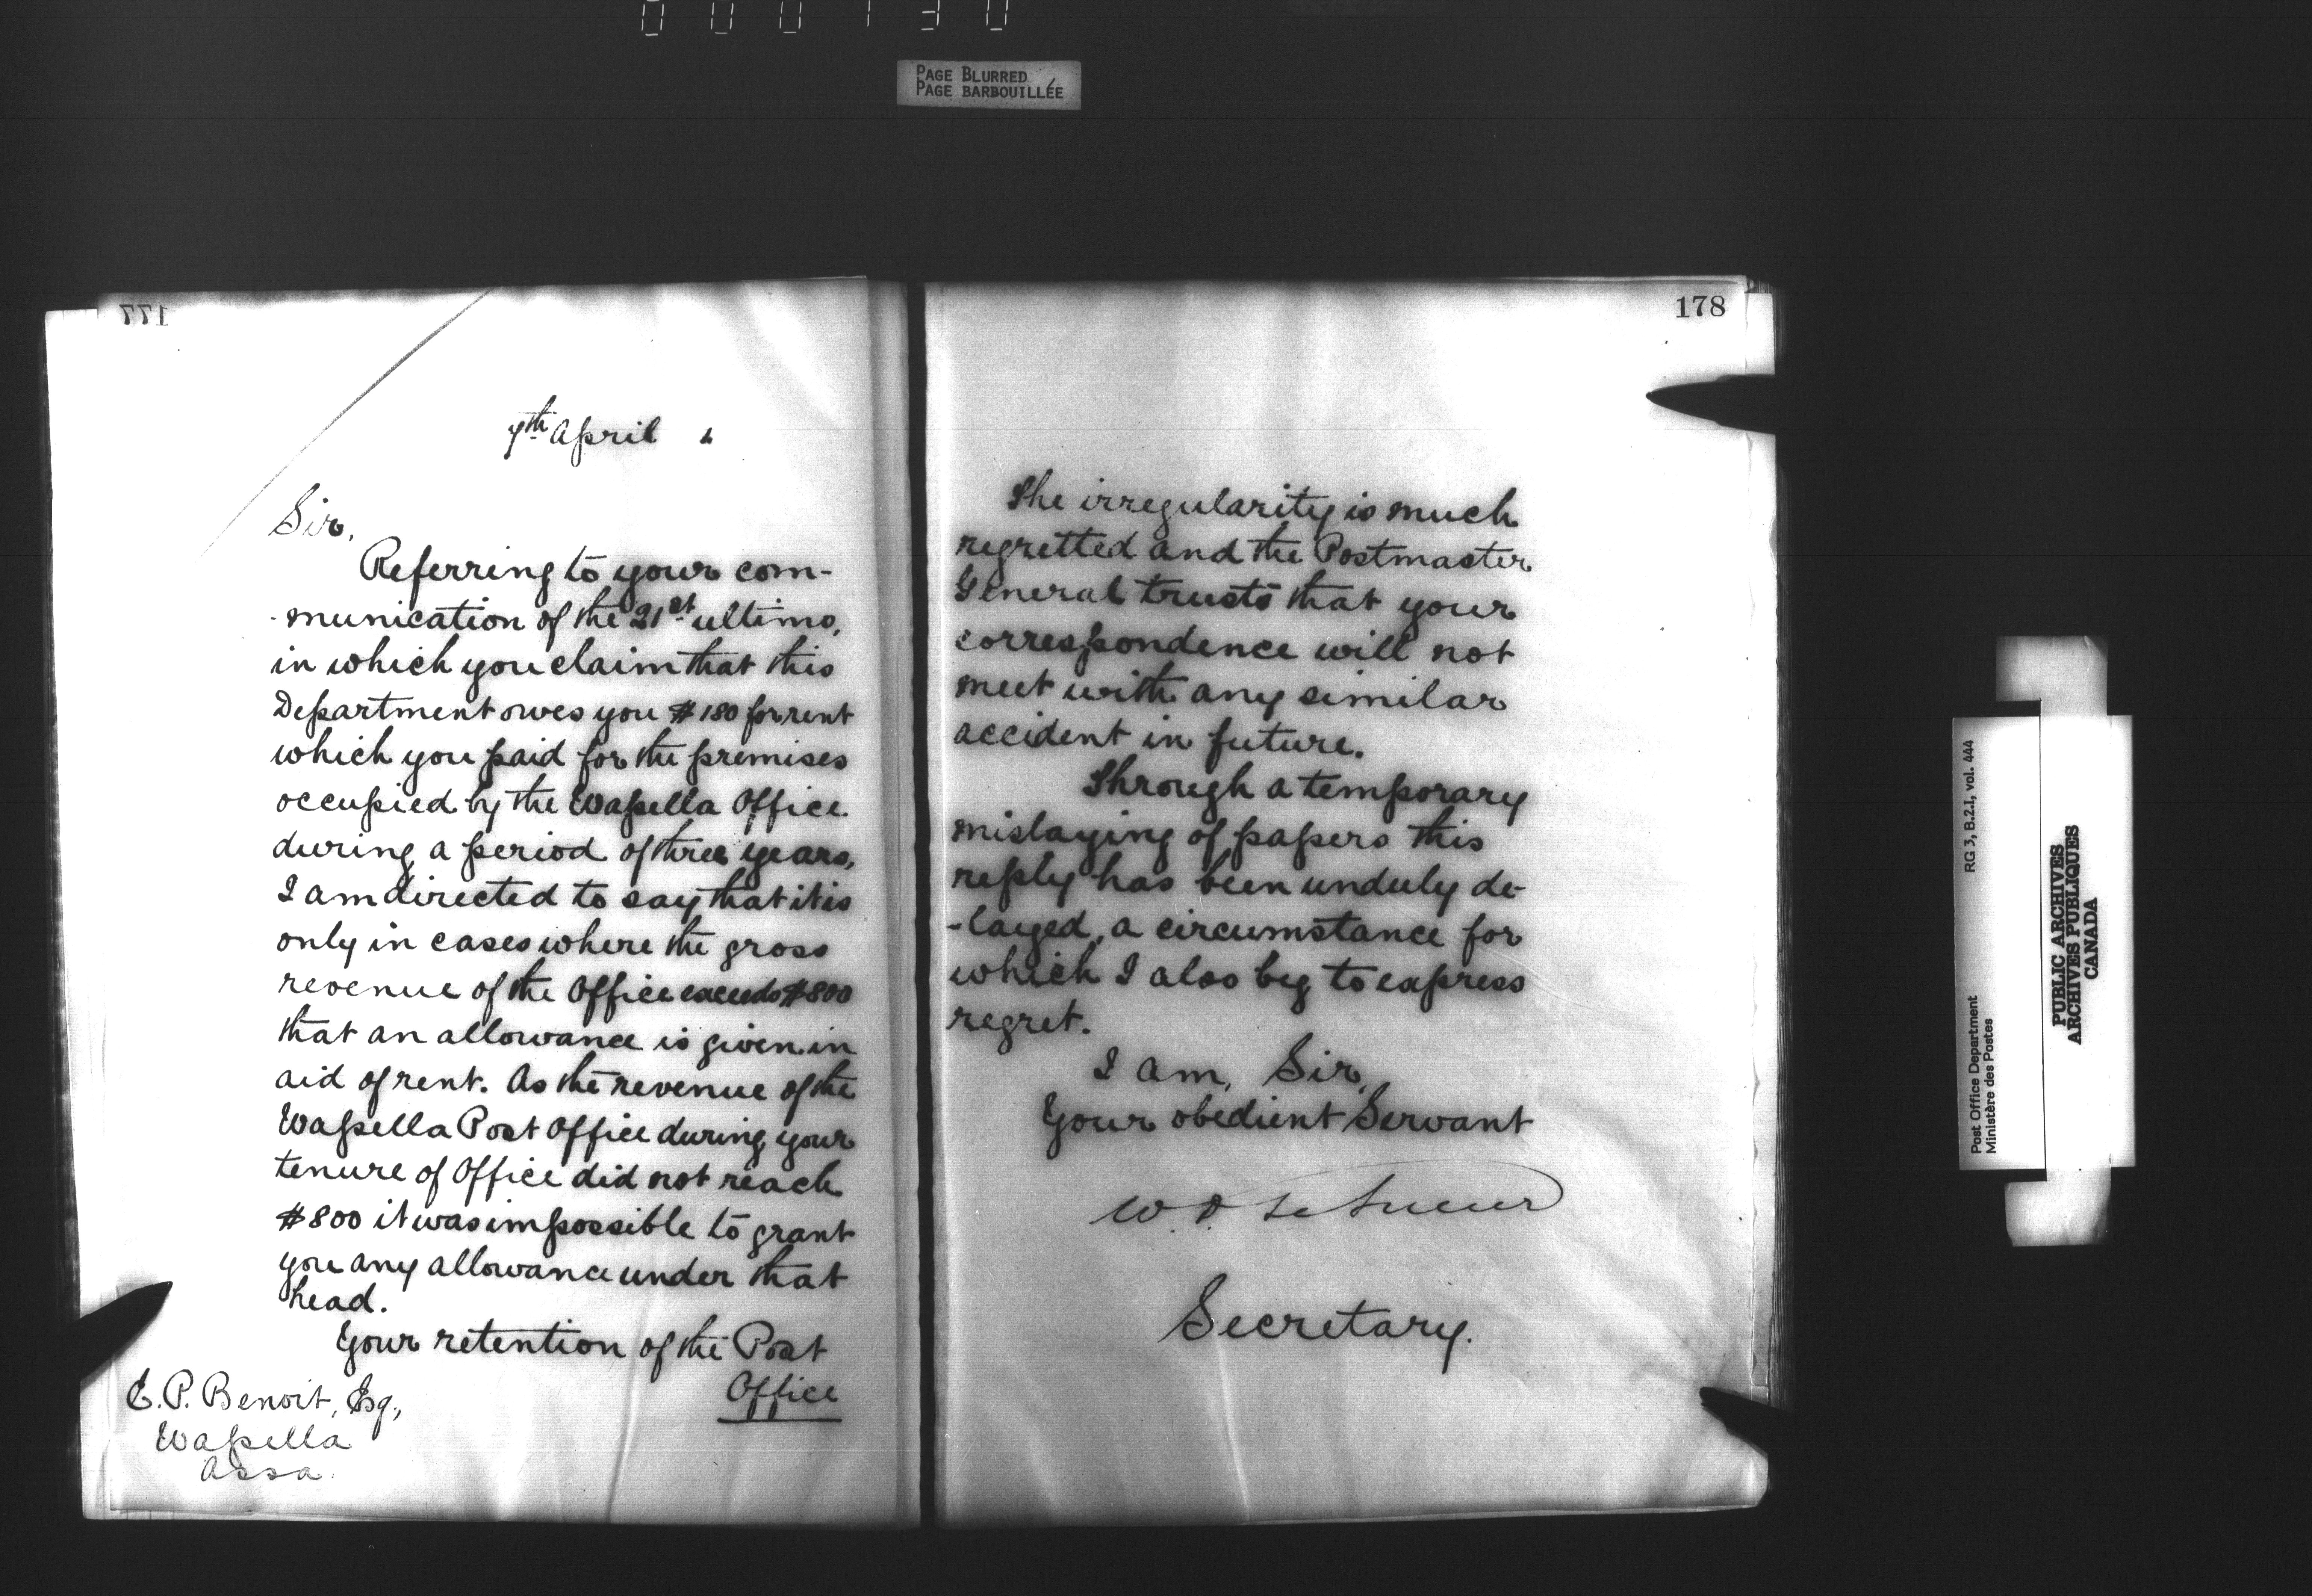 000130
PAGE BLURRED
PAGE BARBOUILLÉE
177
7th April
Sir,
Referring to your com-
-munication of the 21st ultimo,
in which you claim that this
Department owes you $180 for rent
which you paid for the premises
occupied by the Wapella Office
during a period of three years,
I am directed to say that it is
only in cases where the gross
revenue of the Office exceeds $800
that an allowance is given in
aid of rent. As the revenue of the
Wapella Post Office during your
tenure of Office did not reach
$800 it was impossible to grant
you any allowance under that
head.
Your retention of the Post
Office
E. P. Benoit, Esq,
Wapella
Assa.
178
The irregularity is much
regretted and the Postmaster
General trusts that your
correspondence will not
meet with any similar
accident in future.
Through a temporary
mislaying of papers this
reply has been unduly de-
-layed, a circumstance for
which I also beg to express
regret.
I am, Sir,
Your obedient Servant
W. D. Le Sueur
Secretary.
Post Office Department
Ministère des Postes
RG 3, B.2.1, vol. 444
PUBLIC ARCHIVES
ARCHIVES PUBLIQUES
CANADA